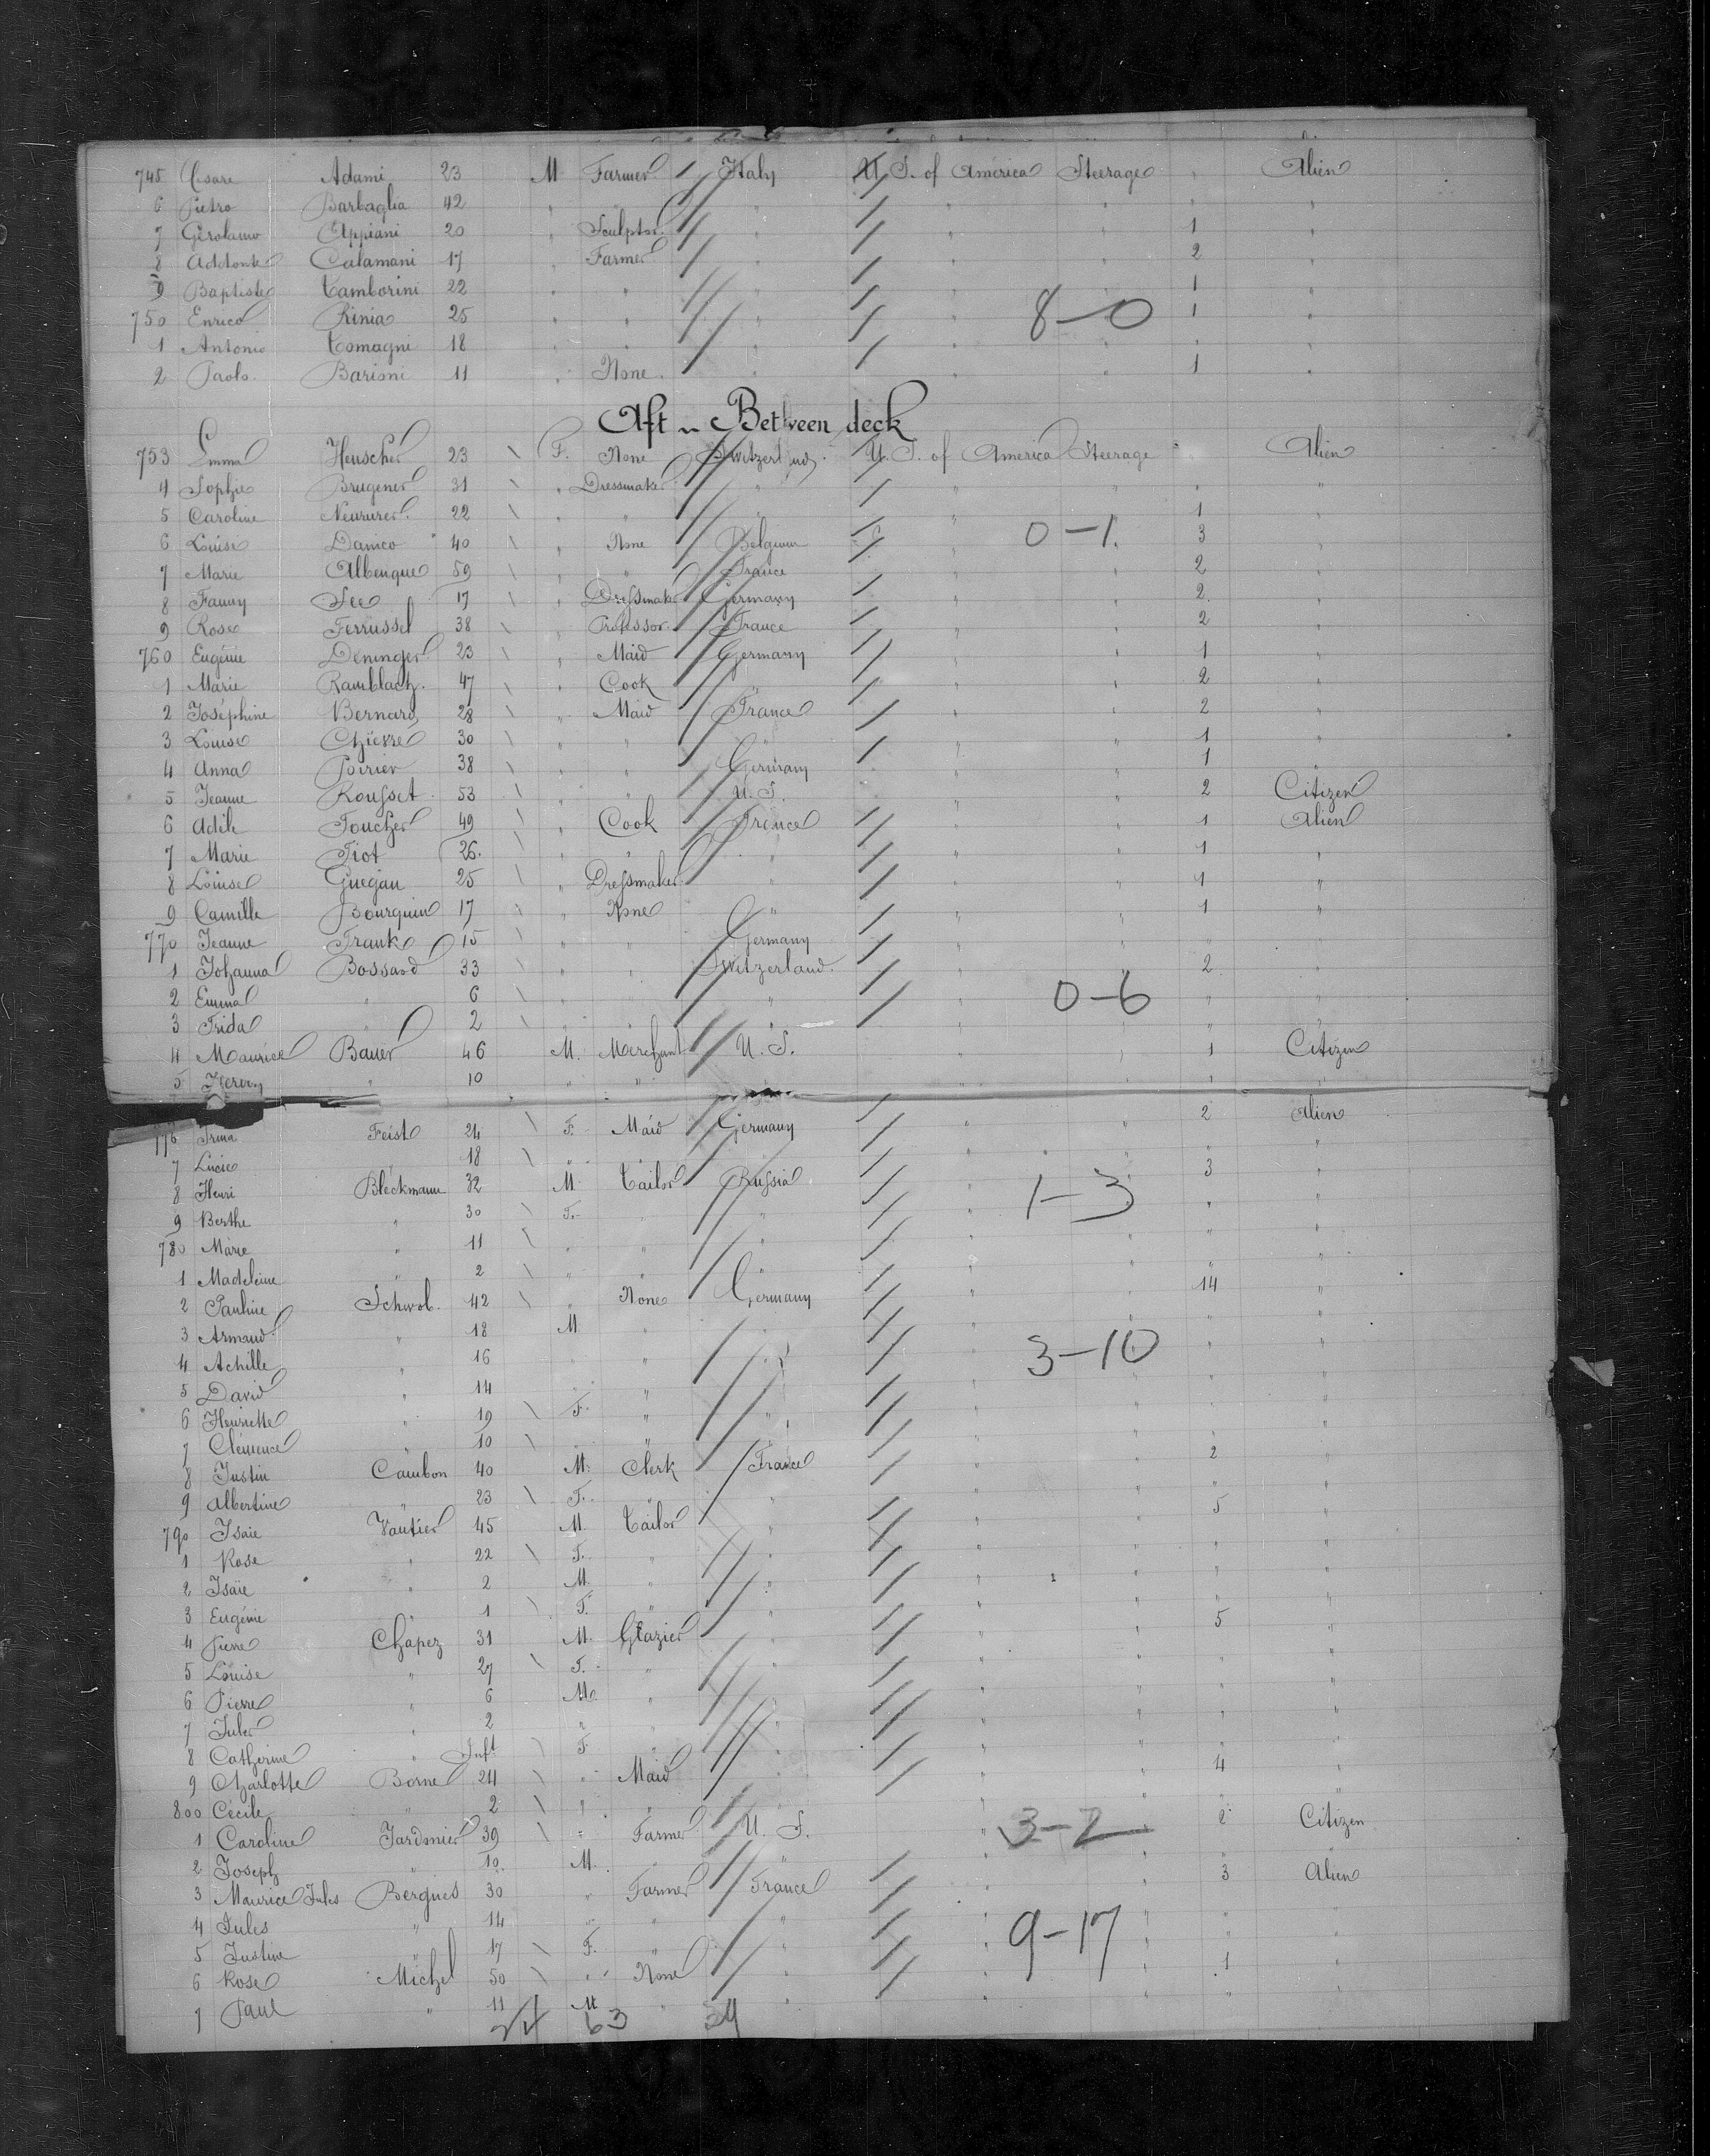 745 Cesare Adami 23 M Farmer Italy U. S. of América Steerage " Alien
6 Pietro Barbaglia 42 " " " " " " " "
7 Gerolamo Appiani 20 " Sculptor " " " " 1 "
8 Calamani 17 " Farmer " " " " 2 "
9 Baptiste Tamborini 22 " " " " " " 1 "
750 Enrico Rinia 25 " " " " " 8-0 1 "
1 Antonio Comagni 18 " " " " " " " "
2 Paolo Barioni 11 " None " " " " 1 "
Aft " Between deck
753 Emma Heuscher 23 F. None Switzerland U. S. of America Steerage " Alien
4 Sophie Brugener 31 " Dressmaker " " " " " "
5 Caroline Neururer 22 " " " " " " 1 "
6 Louise Damco 40 " None Belgium " 0-1 3 "
7 Marie Albengue 59 " " France " " 2 "
8 Fanny See 17 " Dressmaker Germany " " 2 "
9 Rose Ferrussel 38 " Professor France " " 2 "
760 Eugénie Déninger 23 " Maid Germany " " 1 "
1 Marie Ramblach 47 " Cook " " " 2 "
2 Joséphine Bernard 28 " Maid France " " 2 "
3 Louise 30 " " " " " 1 "
4 Anna Poirier 38 " " Germany " " 1 "
5 Jeanne Rousset 53 " " U. S. " " 2 Citizen
6 Adèle Foucher 49 " Cook France " " 1 Alien
7 Marie Piot 26 " " " " " 1 "
8 Louise Guegan 25 " Dressmaker " " " 1 "
9 Camille Bourquin 17 " None " " " 1 "
770 Jeanne Frank 15 " " Germany " " " "
1 Johanna Bossard 33 " " Switzerland " " 2 "
2 Emma " 6 " " " " 0-6 " "
3 Frida " 2 " " " " " " "
4 Maurice Bauer 46 M. Merchant U. S. " " 1 Citizen
5 " 10 " " " " " "
776 Irma Feist 24 F. Maid Germany " " 2 Alien
7 Lucie 18 " " " " " " "
8 Henri Bleckmann 32 M Tailor Russia " " 3 "
9 Berthe " 30 F. " " " 1-3 " "
780 Marie " 11 " " " " " " "
1 Madeleine " 2 " " " " " " "
2 Pauline Schwob 42 " None Germany " " 14 "
3 Armand " 18 M " " " " " "
4 Achille " 16 " " " " 3-10 " "
5 David " 14 " " " " " " "
6 Henriette " 19 F. " " " " " "
7 Clémence " 10 " " " " " " "
8 Justin Cambon 40 M. Clerk France " " 2 "
9 Albertine " 23 F. " " " " " "
790 Isaie Vautier 45 M. Tailor " " " 5 "
1 Rose " 22 F. " " " " " "
2 Isaïe " 2 M. " " " " " "
3 Eugénie " 1 F. " " " " " "
4 Pierre Chapez 31 M. Glazier " " " 5 "
5 Louise " 27 F. " " " " " "
6 Pierre " 6 M. " " " " " "
7 Jules " 2 " " " " " " "
8 Catherine " Inft F. " " " " " "
9 Charlotte Borne 24 " Maid " " " 4 "
800 Cécile " 2 " " " " " " "
1 Caroline Jardinier 39 " Farmer U. S. " 3-2 2 Citizen
2 Joseph " 10 M. " " " " " "
3 Maurice Jules Bergues 30 " Farmer France " " 3 Alien
4 Jules " 14 " " " " " " "
5 Justine " 17 F. " " " 9-17 " "
6 Rose Michel 50 " None " " " 1 "
7 Paul " 11 M " " " " " "
63